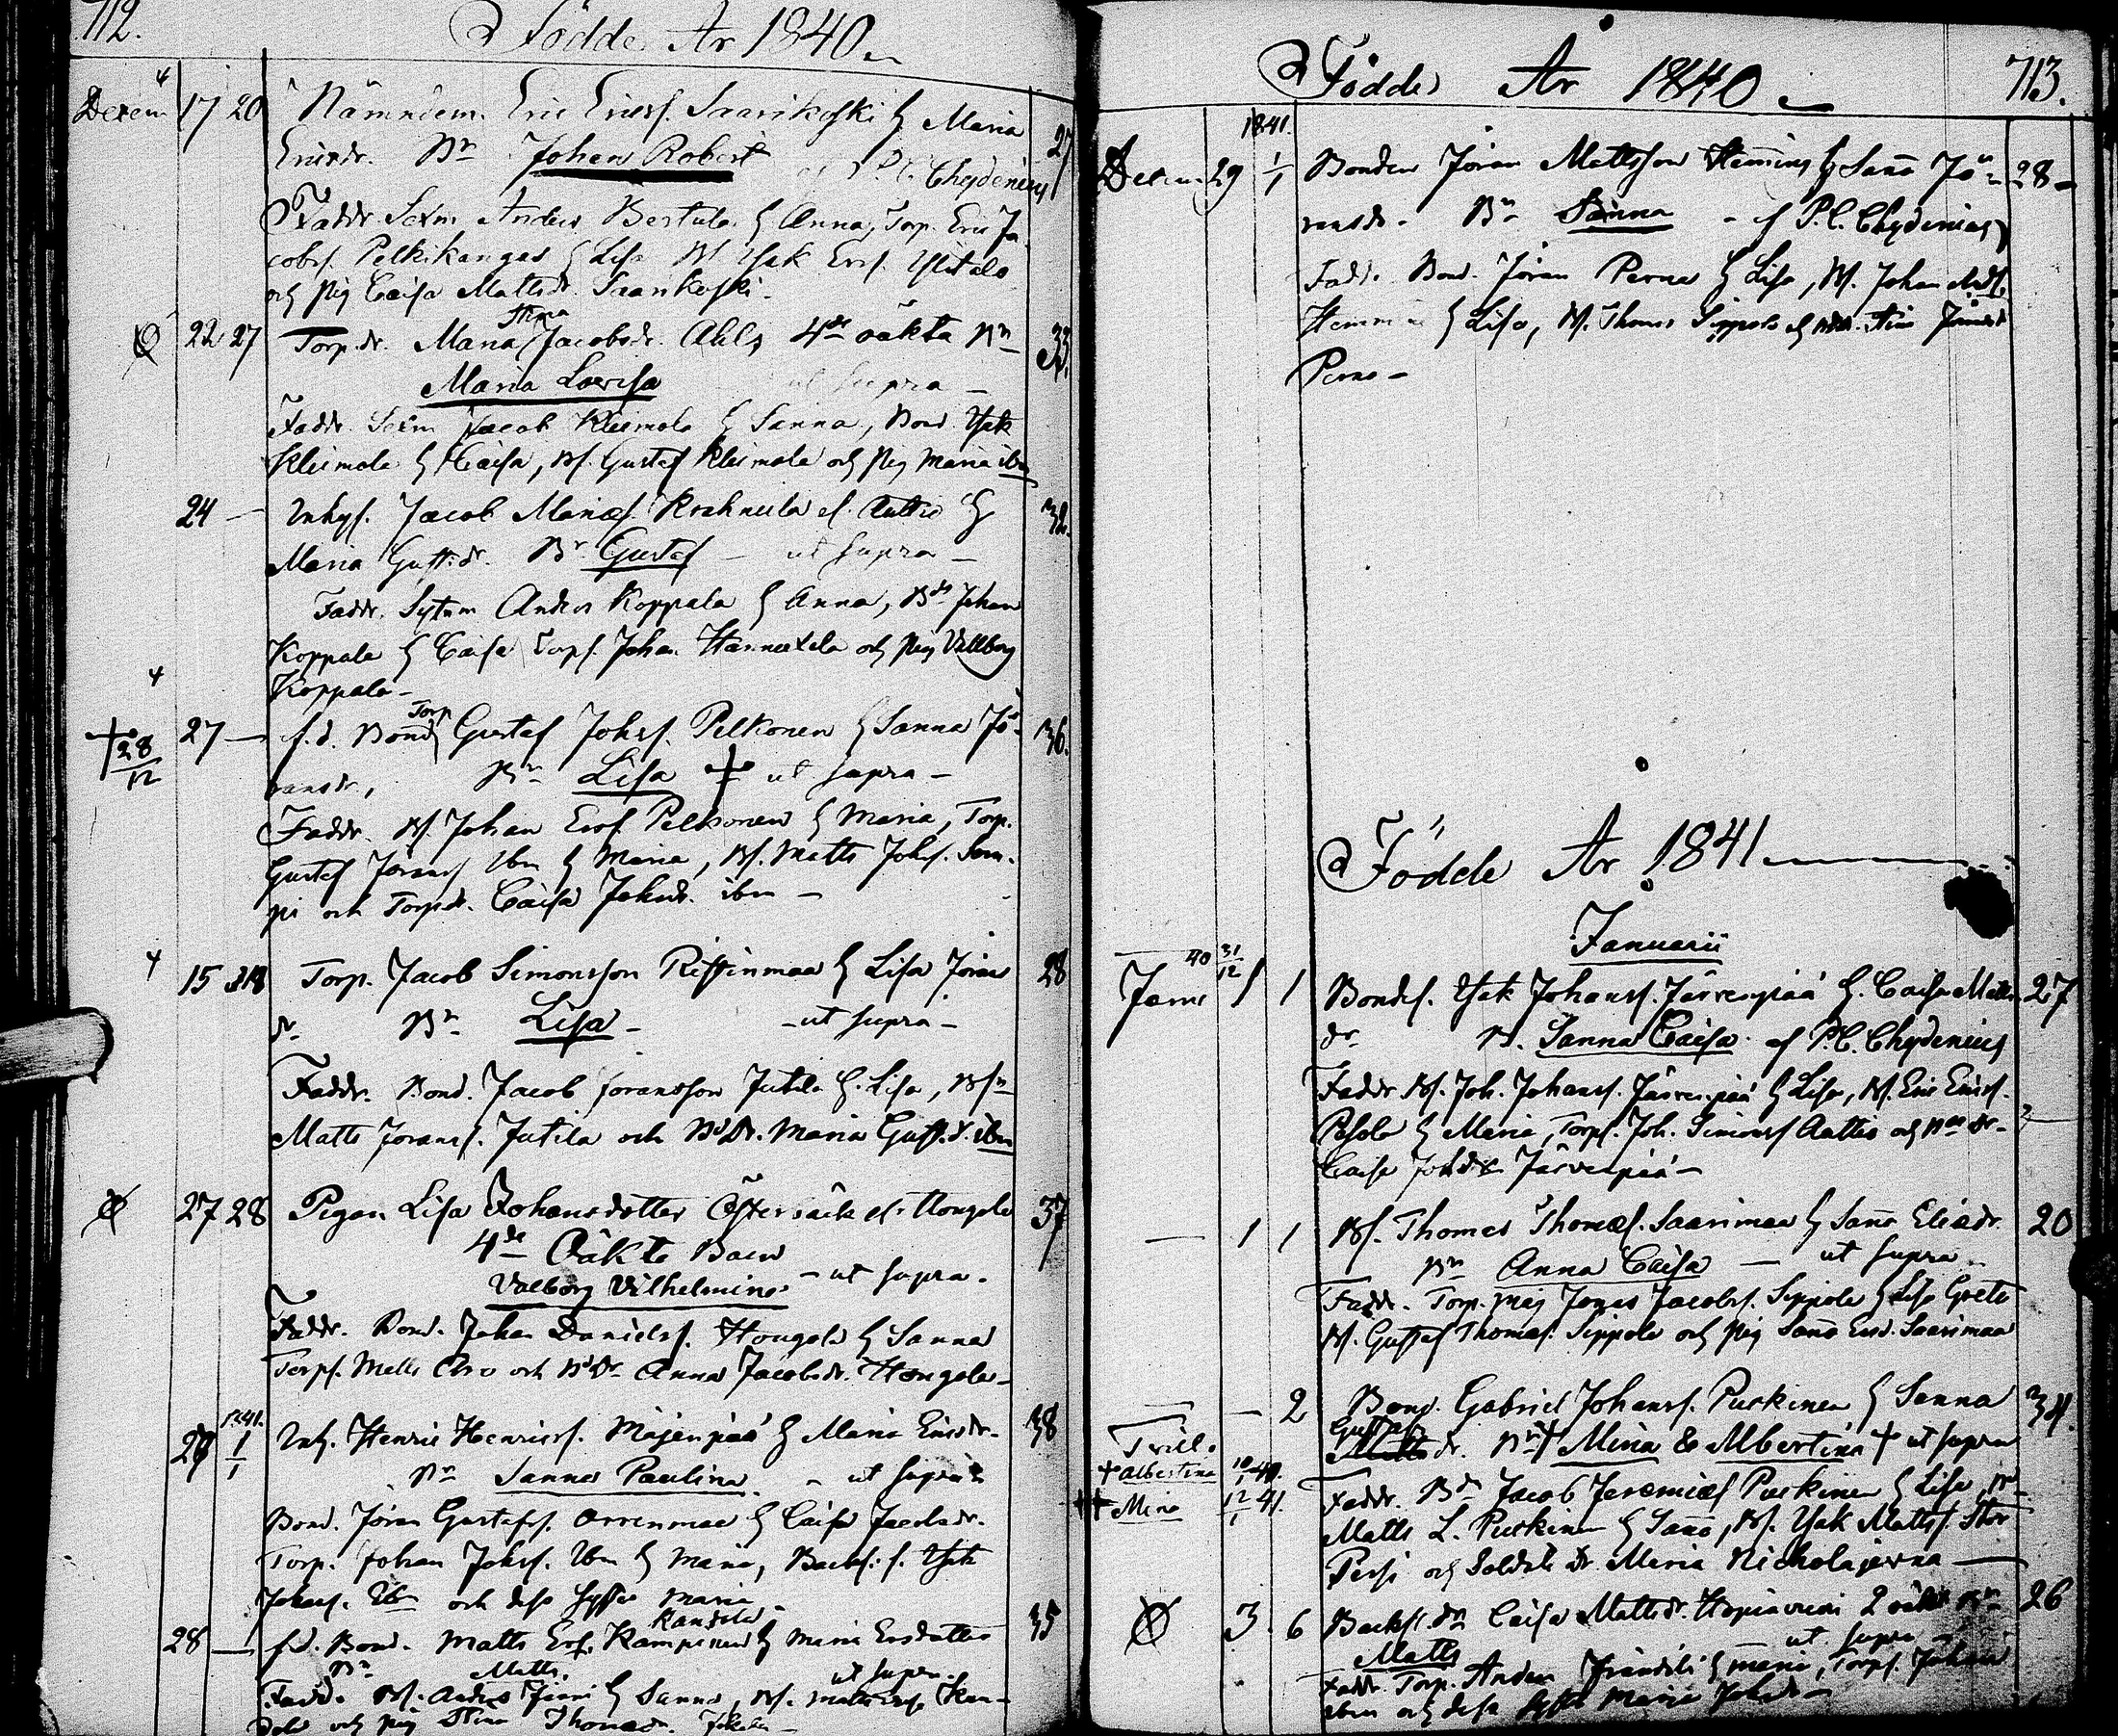 712.
Födde År 1840
Decem 17 20 Nämndem. Eric Ericss. Saarikoski & Maria 27
Ericsdr. Bn Johan Robert P. C. Chydenius
Faddr. Sexm Anders Bertula & Anna, Torp. Eric Ja-
cobs. Pelkikangas & Lisa Bs. Isak Ers. Ylitalo
och pig Caisa Mattsdr. Saarikoski.
22 27 Torp.dr. Maria Stina Jacobsdr. Ahls 4de oäkta Bn 33.
Maria Lovisa ut supra
Faddr. Sexm Jacob Kleimola & Sanna, Bond. Isak
Kleimola & Caisa, Bs. Gustaf Kleimola och pig Maria ibm
24 — Inhys. Jacob Manas. Krahnula el. Auttio & 32.
Maria Gust.dr. Bn Gustaf — ut supra —
Faddr. Sytnm Anders Koppala & Anna, Bd Johan
Koppala & Caisa Torps. Johan Hannuxela och pig Vallborg
Koppala —
† 28/12 27 — f.d. Bond Torp Gustaf Johss. Pelkonen & Sanna Jö- 36.
ransdr, Bn Lisa † ut supra —
Faddr. Bs. Johan Ers. Pelkonen & Maria, Torp.
Gustaf Jöranss Ibm & Maria, Bs. Matts Johss. Sem-
pi och Torpdr. Caisa Johsdr. ibm —
15 18 Torp. Jacob Simonsson Ristinmaa & Lisa Jörans 28
dr. Bn Lisa — — ut supra —
Faddr. Bond. Jacob Joransson Jutila & Lisa, Bsn
Matts Joranss. Jutila och Bd Dr. Maria Gust.dr. ibm
27 28 Pigan Lisa Johansdotter Östersäck el. Hongola 37
4de Oäkta Barn
Valborg Vilhelmina — ut supra.
Faddr. Bond. Johan Danielss. Hongola & Sanna
Torps. Matts Arv och Bd Dr Anna Jacobsdr. Hongola —
1841.
29 1/1 Inh. Henric Henricss. Majenpää & Maria Ericsdr. 38
Bn Sanna Paulina — ut supra
Bond. Jöran Gustafss. Orrenmaa & Caisa Jacobsdr.
Torp. Johan Johss. Ibm & Maria, Backs. s. Isak
Johass. Ibm och dess syster Maria —
28 — f.d. Bond. Matts Ers. Kamppinen Kandola & Maria Ersdotter 35
Bn Matts. ut supra
Faddr. Bs. Anders Jiäri & Sanna, Bs. Matts Ers. Kan-
dola och pig Stina Thomasdr.
Födde År 1840 — 713.
1841.
Decem 29 1/1 Bonden Jöran Mattsson Hemming & Sanna Jö- 28 —
ransdr. Bn Sanna — af P. C. Chydenius
Faddr. Bond. Jöran Perna & Lisa, Bs. Johan Matts.
Hemming & Lisa, Bs. Thomas Sippola & Stina Jöransdr
Perna —
Födde År 1841
Januarii
40 31/12
Janu 1 1 Bondes. Isak Johanss. Järvenpää & Caisa Matts 27
dr. B. Sanna Caisa af P. C. Chydenius
Faddr Bs. Joh. Johanss. Järvenpää & Lisa, Bs. Eric Ericss.
Pesola & Maria, Torps. Joh. Simonss Auttio och Bde Dr
Caisa Johsdr Järvenpää —
— 1 1 Bs. Thomas Thomas. Saarimaa & Sanna Eliædr. 20
Bn Anna Caisa — ut supra
Faddr. Torp. måg Jonas Jacobss. Sippola & Lisa Greta
Bs. Gustaf Thomas. Sippola och pig Sanna Ersd. Saarimaa
— 2 Bond. Gabriel Johanss. Purkinen & Sanna 34.
Gustafs
Matts dr. Bn † Mina & Albertina † ut supra
Tvill.
† Albertina 10/1 41.
†† Mina 12/1 41.
Faddr. Bd Jacob Jeremiæs Purkinen & Lisa, Bd
Matts L. Purkinen & Sanna, Bs. Isak Mattss. Stor
Persi och Soldats Dr. Maria Nicholajevna —
3 6 Backst. dr Caisa Mattsdr. Hopiavuori 2 oäkta Bn 26
Matts ut supra
Faddr. Torp. Anders Frändilä & Maria, Torps. Johan
ibm och dess syster Maria Johsdr —